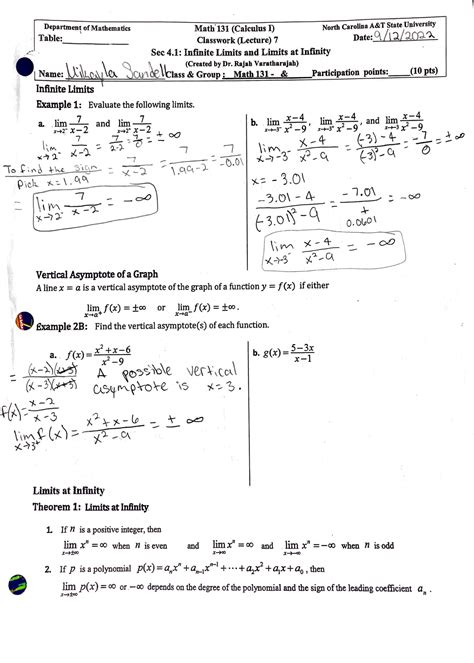 Department of Mathematics
Math 131 (Calculus I)
North Carolina A&T State University
Table:
Classwork (Lecture) 7
Date: 9/12/2022
Sec 4.1: Infinite Limits and Limits at Infinity
(Created by Dr. Rajah Varatharajah)
Name: Mikayla Sandell Class & Group : Math 131 - & Participation points: (10 pts)
Infinite Limits
Example 1: Evaluate the following limits.
a. lim x→2⁻ 7/x−2 and lim x→2⁺ 7/x−2
lim x→2⁻ 7/x-2 = 7/2-2 = 7/0 = ± ∞
To find the sign
Pick x = 1.99
7/x-2 = 7/1.99-2 = 7/-0.01
lim x→2⁻ 7/x-2 = -∞
b. lim x→-3⁻ x−4/x²−9, lim x→-3⁺ x−4/x²−9, and lim x→-3 x−4/x²−9
lim x→-3⁻ x-4/x²-9 = (-3)-4/(-3)²-9 = -7/0 = ± ∞
x = -3.01
-3.01-4/(-3.01)²-9 = -7.01/+0.0601 = -∞
lim x→-3⁻ x-4/x²-9 = -∞
Vertical Asymptote of a Graph
A line x = a is a vertical asymptote of the graph of a function y = f(x) if either
lim x→a⁺ f(x) = ±∞ or lim x→a⁻ f(x) = ±∞.
Example 2B: Find the vertical asymptote(s) of each function.
a. f(x)= x²+x−6/x²−9
= (x-2)(x+3)/(x-3)(x+3)
A possible vertical
asymptote is x = 3.
f(x)= x-2/x-3
lim x→3⁺ f(x) = x²+x-6/x²-9 = ± ∞
b. g(x)= 5−3x/x−1
Limits at Infinity
Theorem 1: Limits at Infinity
1. If n is a positive integer, then
lim x→±∞ xⁿ = ∞ when n is even and lim x→∞ xⁿ = ∞ and lim x→−∞ xⁿ = −∞ when n is odd
2. If p is a polynomial p(x) = aₙxⁿ + aₙ₋₁xⁿ⁻¹ + ⋯ + a₂x² + a₁x + a₀, then
lim x→±∞ p(x) = ∞ or −∞ depends on the degree of the polynomial and the sign of the leading coefficient aₙ.